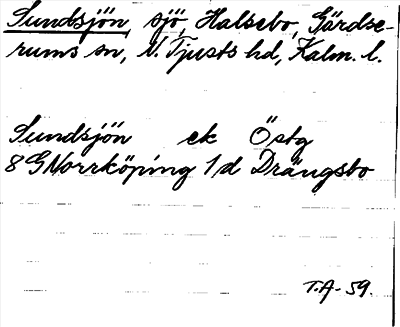 Sundsjön, sjö, Halsebo, Gärdse-
rums sn, N. Tjusts hd, Kalm. l.
Sundsjön ek Östg
8 G Norrköping 1 d Drängsbo
T.A-59.